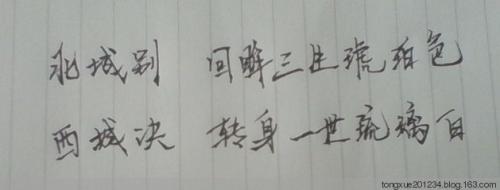 北城别 回眸三生琥珀色
西城决 转身一世琉璃白
tongxue201234.blog.163.com